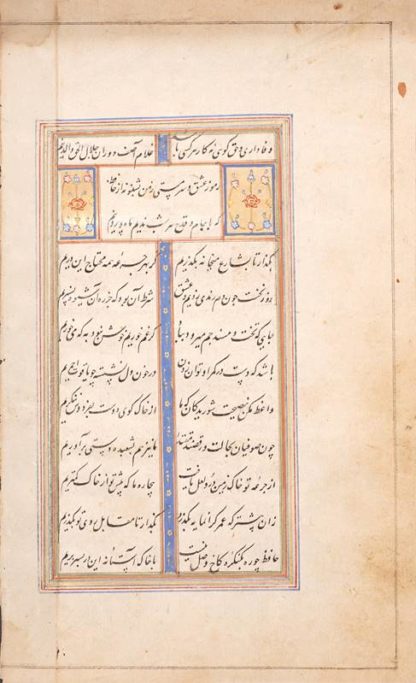 وفاداری و حق گویی نه کار هر کسی باشد غلام آصف دوران جلال الحق والدینم
رموز عشق و سرمستی ز من بشنو نه از حافظ
که با جام و قدح هر شب ندیم ماه و پروینم
بگذار تا بشارع میخانه بگذریم کز بهر جرعه همه محتاج این دریم
روز نخست چون دم رندی زدیم و عشق شرط آن بود که جز ره آن شیوه نسپریم
جایی که تخت و مسند جم میرود بباد گر غم خوریم خوش نبود به که می خوریم
باشد که دست در کمر او توان زدن در خون دل نشسته چو یاقوت احمریم
واعظ مکن نصیحت شوریدگان که ما از خاک کوی دوست بفردوس ننگریم
چون صوفیان بحالت و رقصند مقتدا ما نیز هم بشعبده دستی برآوریم
از جرعه تو خاک زمین در و لعل یافت بیچاره ما که پیش تو از خاک کمتریم
زان پیشتر که عمر گرانمایه بگذرد بگذار تا مقابل روی تو بگذریم
حافظ چو ره بکنگره کاخ وصل نیست با خاک آستانه این در بسر بریم